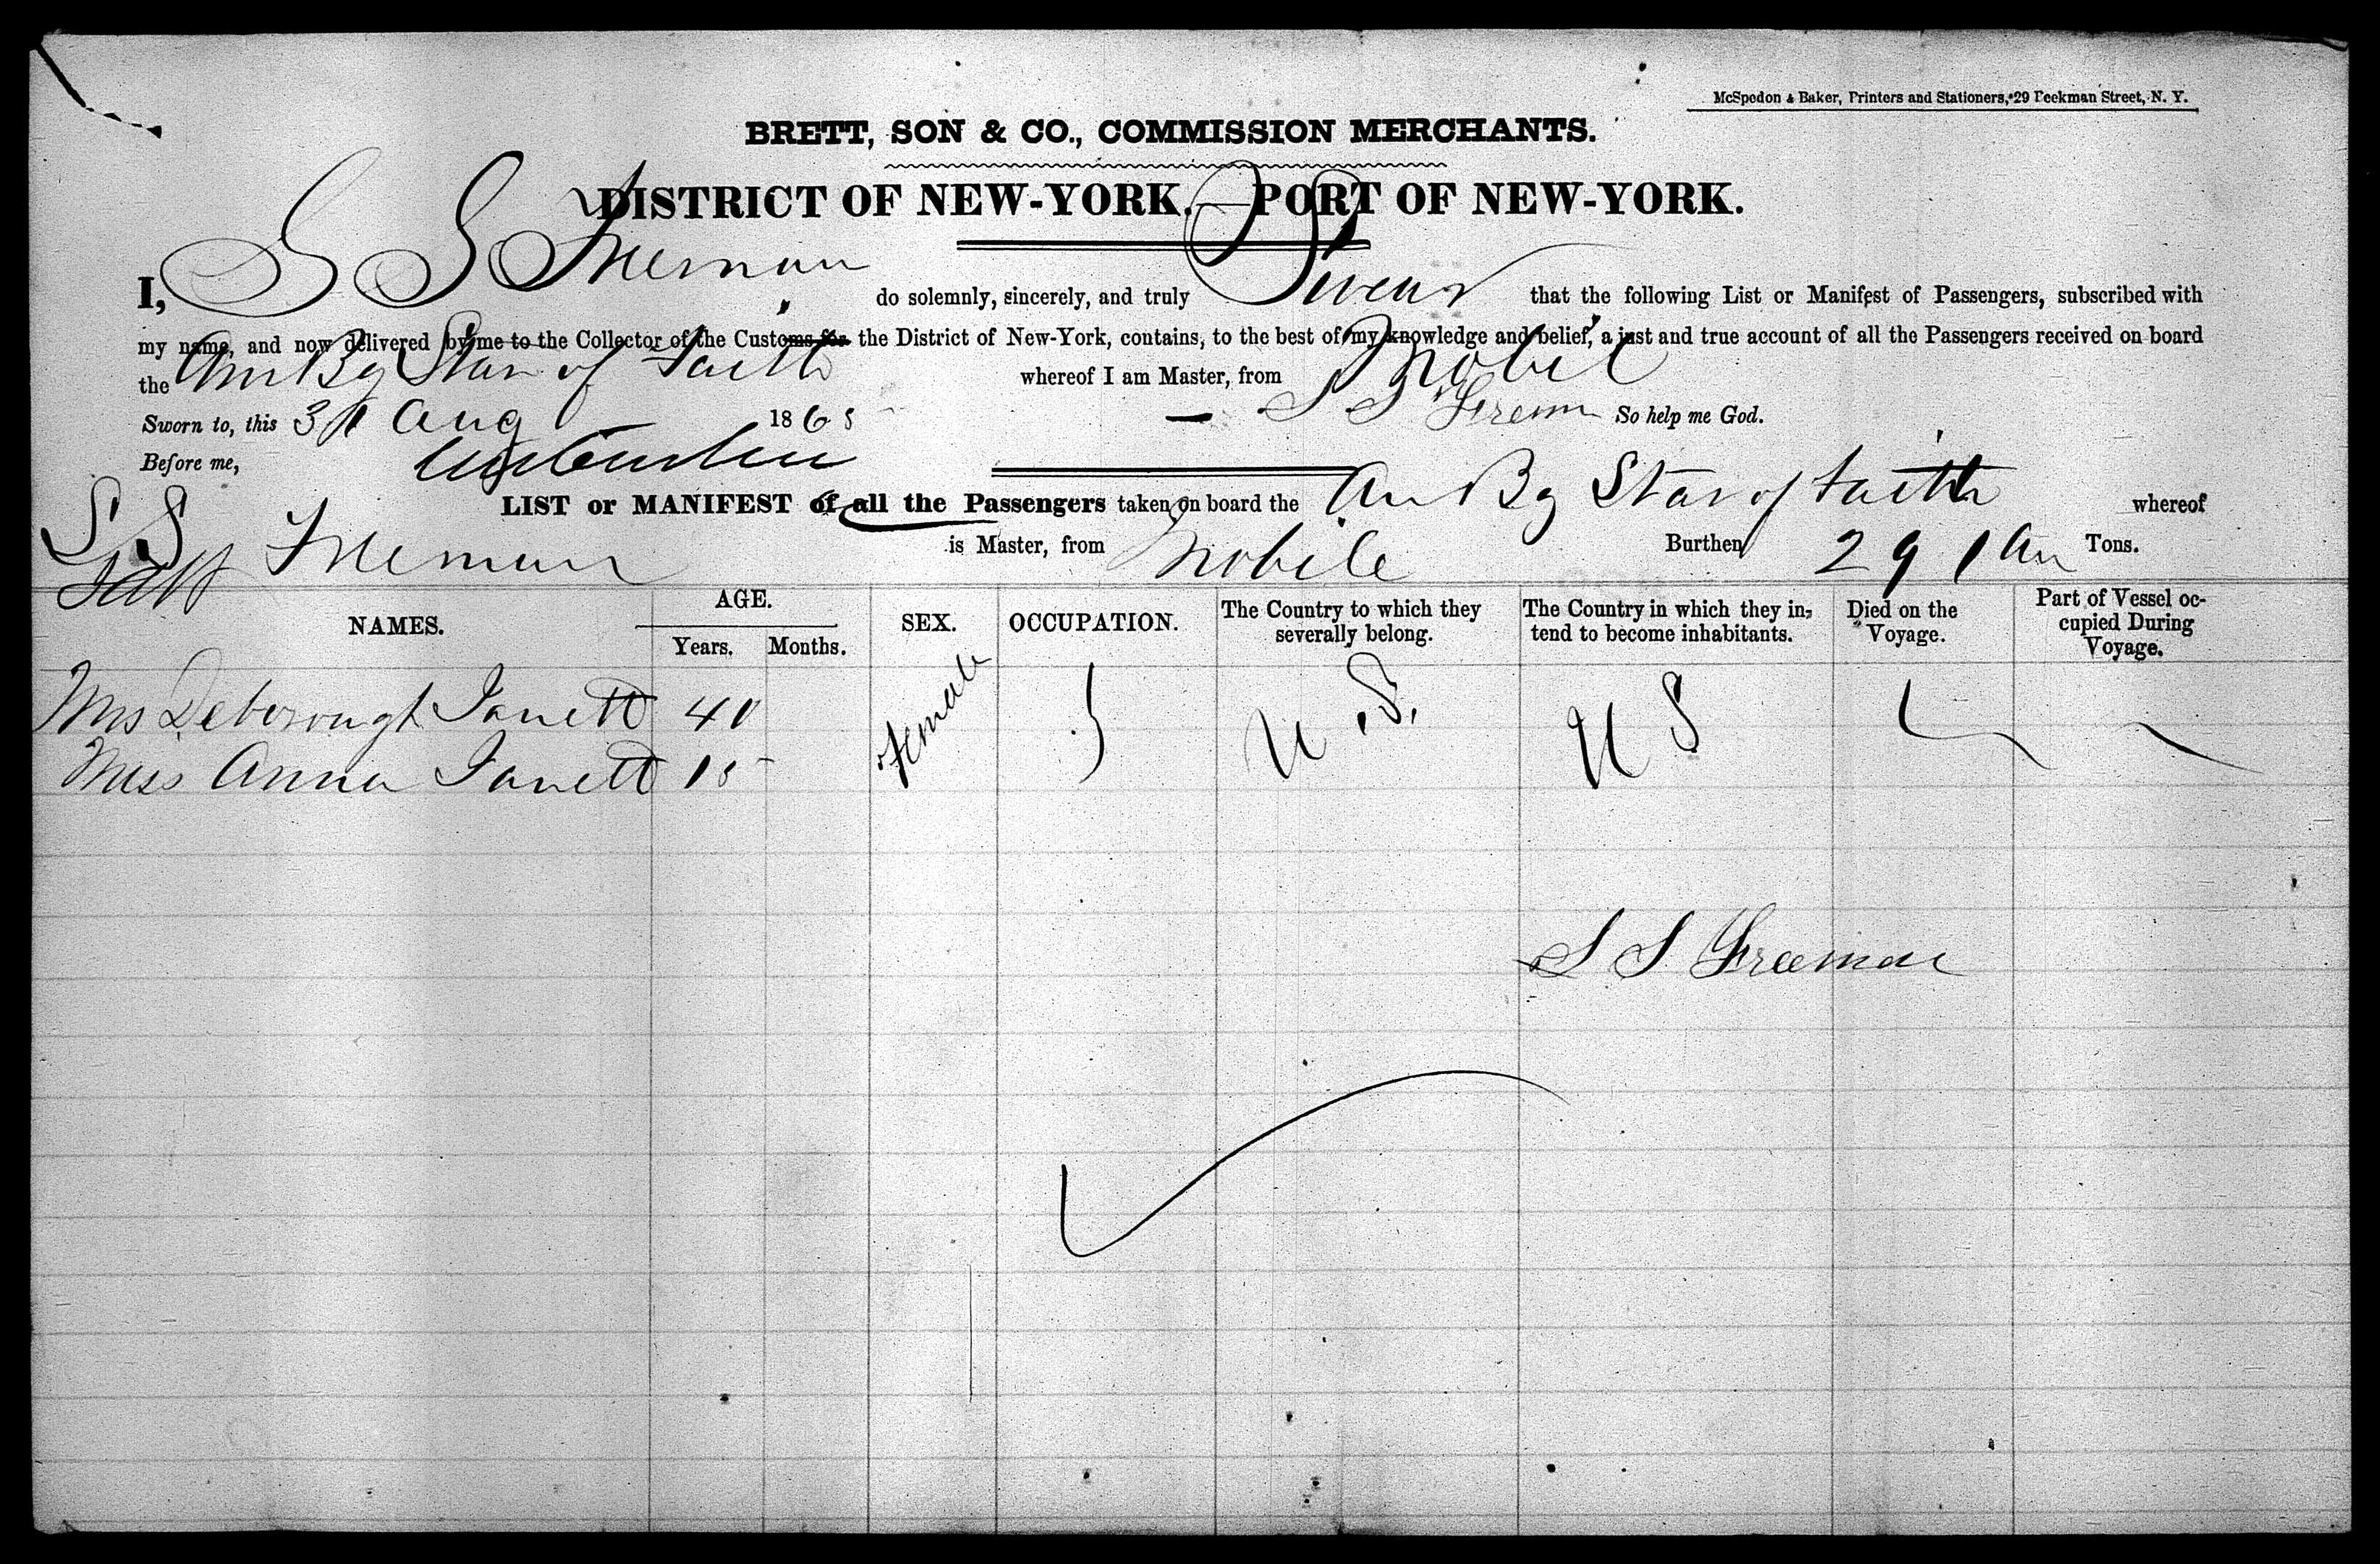 McSpedon & Baker, Printers and Stationers, 29 Beekman Street, N. Y.
BRETT, SON & CO., COMMISSION MERCHANTS.
DISTRICT OF NEW-YORK.—PORT OF NEW-YORK.
I, S S Freeman do solemnly, sincerely, and truly Swear that the following List or Manifest of Passengers, subscribed with
my name, and now delivered by me to the Collector of the Customs for the District of New-York, contains, to the best of my knowledge and belief, a just and true account of all the Passengers received on board
the Am Bg Star of Faith whereof I am Master, from Mobile
Sworn to, this 31 Aug 1865 S S Freeman So help me God.
Before me,
LIST or MANIFEST of all the Passengers taken on board the Am Bg Star of Faith whereof
S S Freeman is Master, from Mobile Burthen 291 Tons.
NAMES. AGE. Years. Months. SEX. OCCUPATION. The Country to which they severally belong. The Country in which they intend to become inhabitants. Died on the Voyage. Part of Vessel occupied During Voyage.
Mrs Deborough 40 Female U.S. U S
Miss Anna 15
S S Freeman